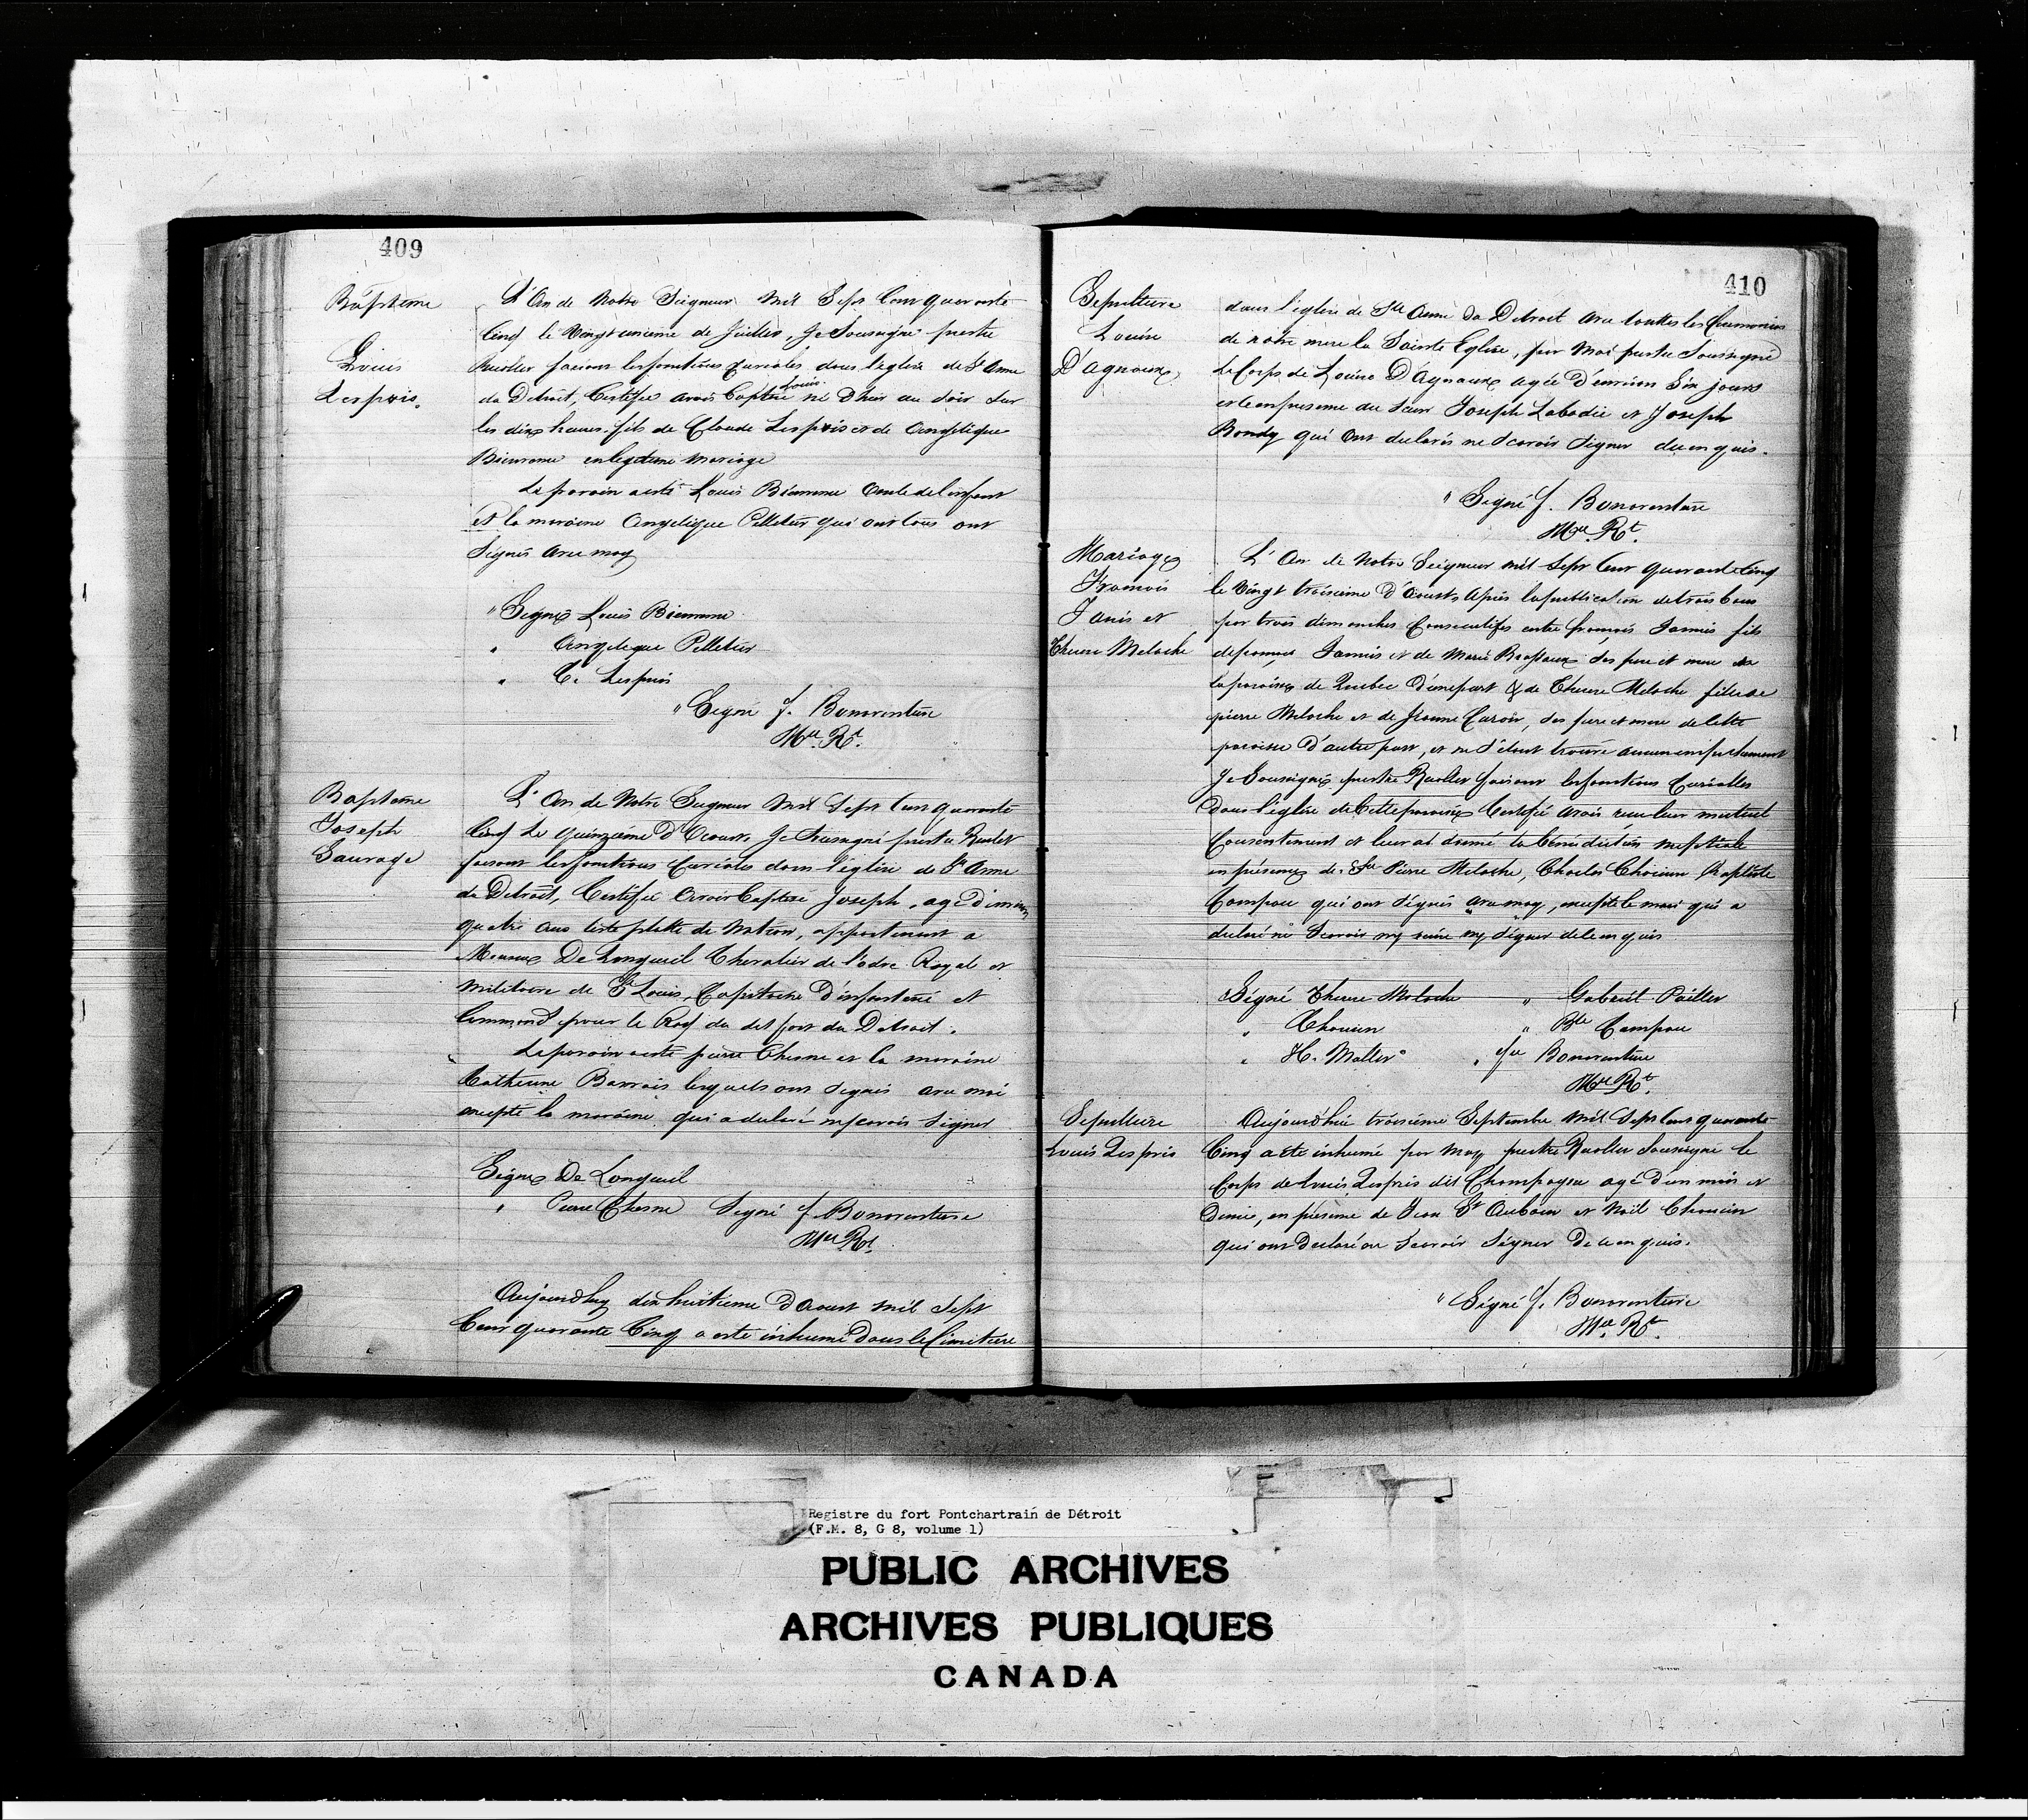 409
Bapteme
Louis
Lespris.
L'An de Notre Seigneur Mil Sept Cent quarante
Cinq le Vingt unieme de Juillet, Je Soussigné prestre
Recollet faisant les fonctions curiales dans l'eglise de St Anne
du Detroit, Certifie avoir Baptisé Louis né D'hier au Soir Sur
les dix heures, fils de Claude Lespris et de Angelique
Bienvenue en legitime Mariage
Le parain a esté Louis Bienvenue Oncle de l'enfant
et la maraine Angelique Pelletier qui ont tous ont
Signés avec moy
" Signé Louis Bienvenue
" Angelique Pelletier
" C. Lespris
" Signé f. Bonaventure
Mre. Rt.
Bapteme
Joseph
Sauvage
L'An de Notre Seigneur Mil Sept Cent quarante
Cinq Le quinzieme d'Aoust, Je Soussigné prestre Recolet
faisant les fonctions Curiales dans l'église de St Anne
du Detroit, Certifie avoir Baptisé Joseph, agé d'environ
quatre ans teste platte de Nation, appartenant a
Monsieur De Longueuil Chevalier de l'odre Royal et
militaire de St Louis, Capitaine d'infanterie et
Command pour le Roy du det fort du Detroit.
Le parain a esté pierre Chesne et la maraine
Catherine Barrois lesquels ont Signés avec moi
excepté la maraine qui a declaré ne scavoir signer
Signé De Longueuil
" Pierre Chesne Signé f. Bonaventure
Mre Rt.
Aujourdhuy dix huitieme D'Aoust mil Sept
Cent quarante Cinq a esté inhumé Dans le Cimetiere
410
Sepulture
Louise
D'agneaux
dans l'eglise de Ste Anne du Detroit avec touttes les Ceremonies
de notre mere la Sainte Eglise, par Moi prestre Soussigné
Le Corps de Louise D'Agneaux agée d'environ Six jours
et le en presence du Sieur Joseph Labadie et Joseph
Bondy qui ont declarés ne Scavoir Signer de ce enquis.
" Signé f. Bonaventure
Mre. Rt.
Mariage
Francois
Janis et
Therese Meloche
L'An de Notre Seigneur mil Sept Cent quarante Cinq
le Vingt troisieme d'Aoust, Apres la publication de trois bans
par trois dimanches Consecutifes entre francois Jannis fils
de francois Jannis et de Marie Brassaux ses pere et mere de
la paroisse de Quebec d'une part & de Therese Meloche fille de
pierre Meloche et de Jeanne Caron, ses pere et mere de cette
paroisse D'autre part, et ne S'étant trouvé aucun empechement
Je Soussigné prestre Recollet faisant les fonctions Curialles
Dans l'église de Cette paroisse Certifie avoir recu leur mutuel
Consentement et leur ai donné la benediction nuptiale
en présence de Sr Pierre Meloche, Charles Chauvin Baptiste
Campau qui ont signés avec moy, excepté le mari qui a
declaré ne Scavoir ny écrire ny Signer de ce enquis
Signé Therese Meloche " Gabriel Pailler
" Chauvin " Bte Campau
" H. Mallet " fre Bonaventure
Mre Rt.
Sepulture
Louis Lespris
Aujourd'hui troisieme Septembre Mil Sept Cent quarante
Cinq a été inhumé par moy prestre Recollet Soussigné le
Corps de Louis Lespris dit Champagne agé d'un mois et
Demie, en présence de Jean St Aubin et Noël Chauvin
qui ont Declaré ne Scavoir Signer De ce enquis.
" Signé f. Bonaventure
Mre. Rt.
Registre du fort Pontchartrain de Détroit
(F.M. 8, G 8, volume 1)
PUBLIC ARCHIVES
ARCHIVES PUBLIQUES
CANADA